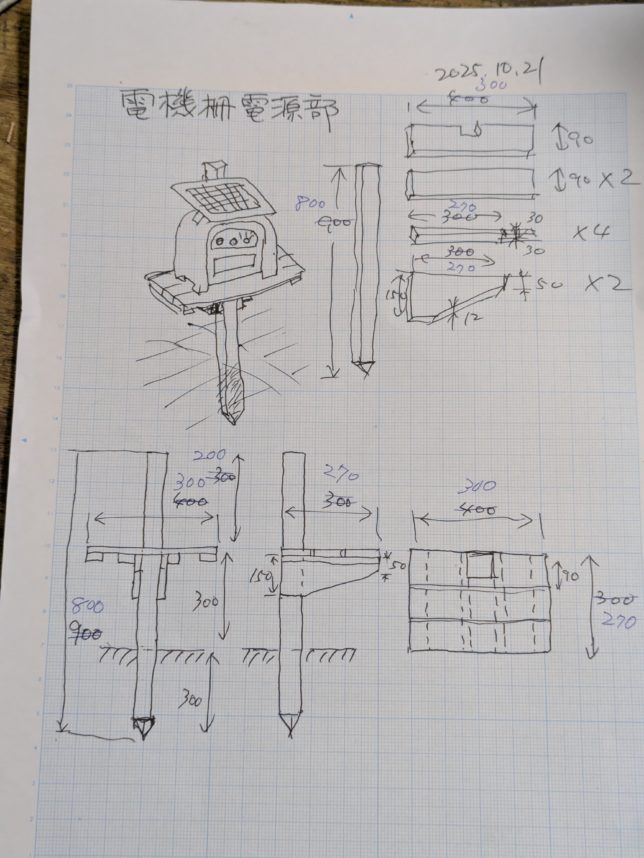 2025.10.21
電機柵電源部
300
400
90
90 ×2
800
900
270
300
30
30
×4
300
270
150
50
×2
12
200
300
300
400
270
300
300
400
150
50
90
300
270
800
900
300
300